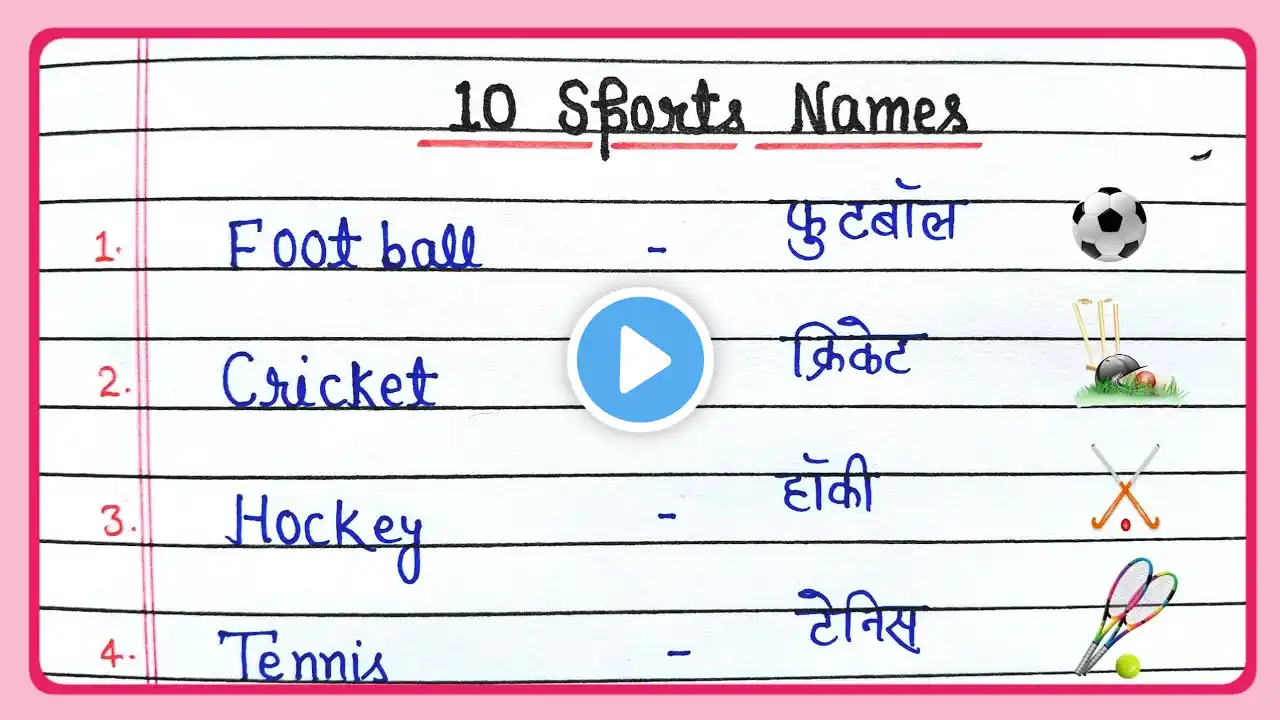 10 Sports Names
1. Football - फुटबॉल
2. Cricket क्रिकेट
3. Hockey - हॉकी
4. Tennis - टेनिस